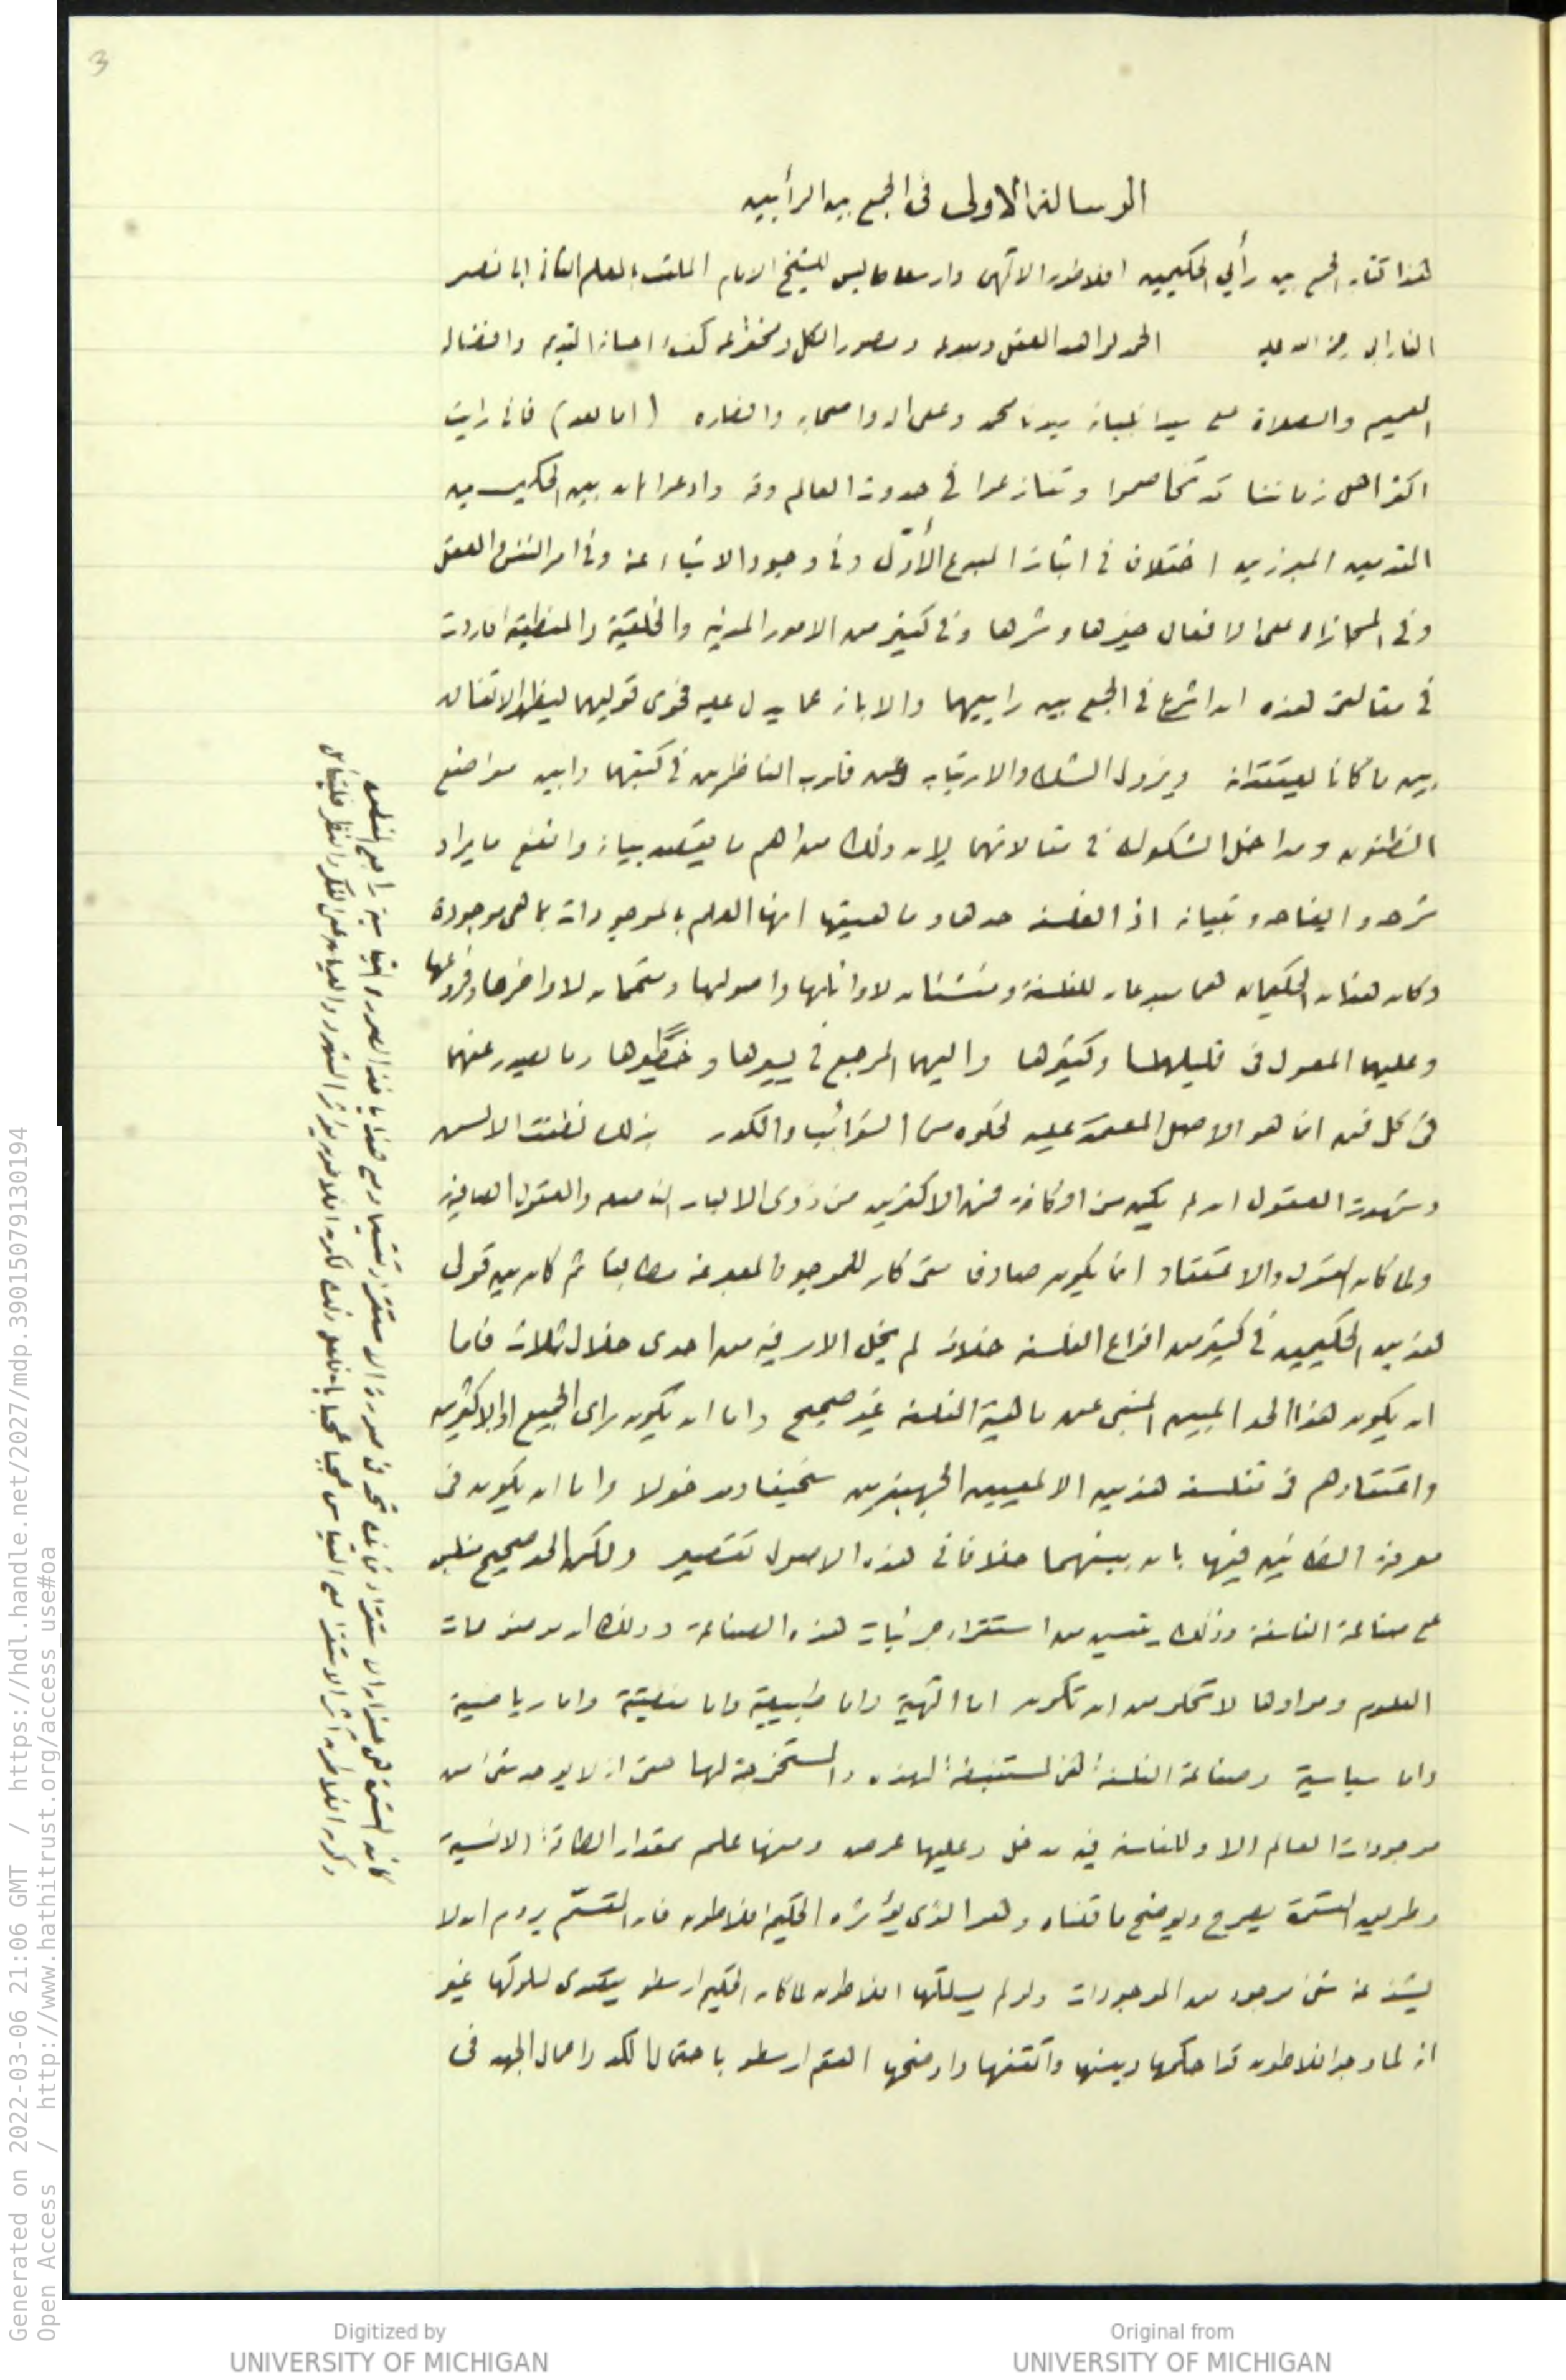 3
الرسالة الاولى فى الجمع بين الرأيين
هذا كتاب الجمع بين رأيي الحكيمين افلاطون الالهى وارسطاطاليس للشيخ الامام الملقب بالمعلم الثانى ابى نصر
الفارابى رحمة الله عليه الحمد لواهب العقل ومبدعه ومصور الكل ومخترعه كفى احسانه القديم وافضاله
العميم والصلاة على سيد انبيائه سيدنا محمد وعلى اله واصحابه وانصاره (اما بعد) فانى رايت
اكثر اهل زماننا قد تخاصموا وتنازعوا فى حدوث العالم وقدمه وادعوا ان بين الحكيمين
المقدمين المبرزين اختلافا فى اثبات المبدع الأوّل وفى وجود الاشياء عنه وفى امر النفس والعقل
وفى المجازاه على الافعال خيرها وشرها وفى كثير من الامور المدنيه والخلقيّة والمنطقيّة اردت
فى مقالتى هذه ان اشرع فى الجمع بين راييهما والابانه عما يدل عليه فحوى قوليهما ليظهر الاتفاق
بين ما كانا يعتقدانه ويزول الشك والارتياب عن قلوب الناظرين فى كتبهما وابين مواضع
الظنون ومداخل الشكوك فى مقالاتهما لان ذلك من اهم ما يقصد بيانه وانفع ما يراد
شرحه وايضاحه وتبيانه اذ الفلسفه حدها وماهيتها انها العلم بالموجودات بما هى موجودة
وكان هذان الحكيمان هما مبدعان للفلسفة ومنشئان لاوائلها واصولها ومتممان لاواخرها وفروعها
وعليهما المعول فى قليلها وكثيرها واليهما المرجع فى يسيرها وخطيرها وما يصدر عنهما
فى كل فن انما هو الاصل المعتمد عليه لخلوه من الشوائب والكدر بذلك نطقت الالسن
وشهدت العقول ان لم يكن من الكافة فمن الاكثرين من ذوى الالباب الناصعه والعقول الصافية
ولما كان القول والاعتقاد انما يكون صادقا متى كان للموجود المعبر عنه مطابقا ثم كان بين قول
هذين الحكيمين فى كثير من انواع الفلسفه خلاف لم يخل الامر فيه من احدى خلال ثلاث فاما
ان يكون هذا الحد المبين المنبى عن ماهية الفلسفه غير صحيح واما ان يكون راى الجميع او الاكثرين
واعتقادهم فى تفلسف هذين الالمعيين الجهبذين سخيفا ومدخولا واما ان يكون فى
معرفة الظانين فيهما بان بينهما خلافا فى هذه الاصول تقصير ولكن الحد صحيح مطابق
على صناعة الفلسفة وذلك يتبين من استقراء جزئيات هذه الصناعة وذلك ان موضوعات
العلوم وموادها لا تخلو من ان تكون اما الهيّة واما طبيعيّة واما منطقيّة واما رياضية
واما سياسية وصناعة الفلسفة هى المستنبطة لهذه والمستخرجة لها حتى انه لا يوجد شئ من
موجودات العالم الا وللفلسفة فيه مدخل وعليها غرض ومنها علم بمقدار الطاقة الانسية
وطريق القسمة يصرح ويوضح ما قلناه وهو الذى يؤثره الحكيم افلاطون فان المقسّم يروم ان لا
يشذ عنه شئ موجود من الموجودات ولو لم يسلكها افلاطون لما كان الحكيم ارسطو يتصدى لسلوكها غير
انه لما وجد افلاطون قد احكمها وبينها واتقنها واوضحها اهتم ارسطو باحتمال الكد واعمال الجهد فى
Generated on 2022-03-06 21:06 GMT / https://hdl.handle.net/2027/mdp.39015079130194
Open Access / http://www.hathitrust.org/access_use#oa
Digitized by
UNIVERSITY OF MICHIGAN
Original from
UNIVERSITY OF MICHIGAN